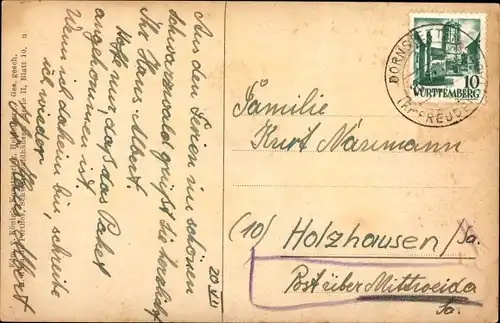 Aus den Ferien im schönen
Schwarzwald grüßt Sie herzlichst
Ihr Hans Albert.
Hoffe nur, daß das Paket
angekommen ist.
Wenn ich daheim bin, schreibe
ich wieder
Hans Albert
20.
Ges. gesch.
II, Blatt 10.
10
WÜRTTEMBERG
Familie
Kurt Naumann
(10) Holzhausen/Sa.
Post über Mittweida
Sa.